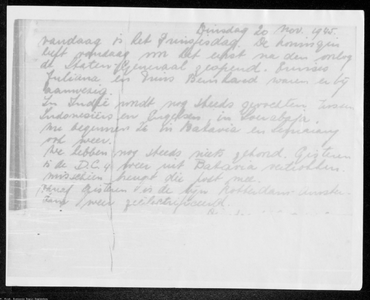 Dinsdag 20 Nov. 1945.
Vandaag is het Prinsjesdag. De Koningin
heeft vandaag voor het eerst na den oorlog
de Staten-Generaal geopend. Prinses
Juliana en Prins Bernhard waren er bij
aanwezig.
In Indië wordt nog steeds gevochten tussen
Indonesiërs en Engelsen, in Soerabaja.
Nu beginnen ze in Batavia en Semarang
ook weer.
We hebben nog steeds niets gehoord. Gisteren
is de D.C. 4 weer uit Batavia vertrokken
misschien brengt die post mee.
Vanaf gisteren is de lijn Rotterdam-
weer geëlektrificeerd.